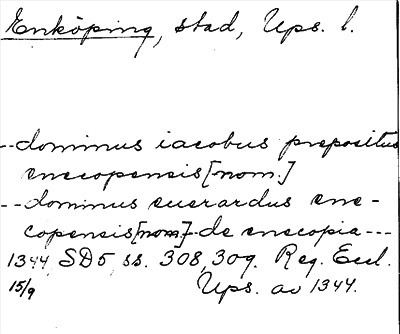 Enköping, stad, Ups. l.
--dominus iacobus prepositus
enecopensis [nom.]
--dominus euerardus ene-
copensis [nom]-de enecopia---
1344 SD5 ss. 308, 309. Reg. Eccl.
15/9 Ups. av 1344.